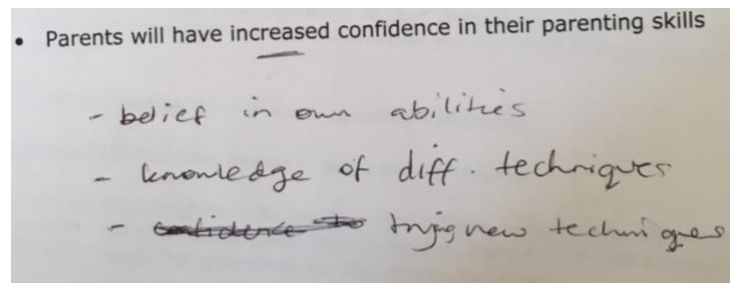 • Parents will have increased confidence in their parenting skills
- belief in own abilities
- knowledge of diff. techniques
- confidence to trying new techniques